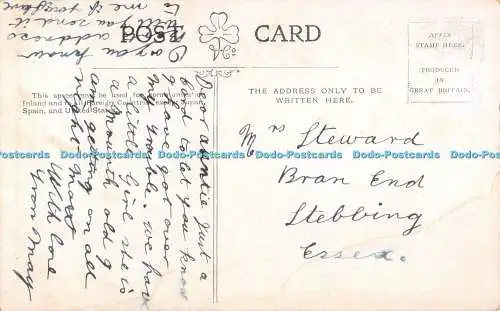 POST CARD
AFFIX
STAMP HERE.
PRODUCED
IN
GREAT BRITAIN.
This space may be used for communication
Inland and to all Foreign Countries, except Japan,
Spain, and United States
THE ADDRESS ONLY TO BE
WRITTEN HERE.
Mrs Steward
Bran End
Stebbing
Essex.
Dear auntie Just a
Card to let you know
I have got over
my trouble. we have
a little Girl she is
a month old
and getting on all
right
With love
from May
Do you know
address
will you send it
to me if
DodoPostcards DodoPostcards DodoPostcards DodoPostcards DodoPostcards DodoPostcards